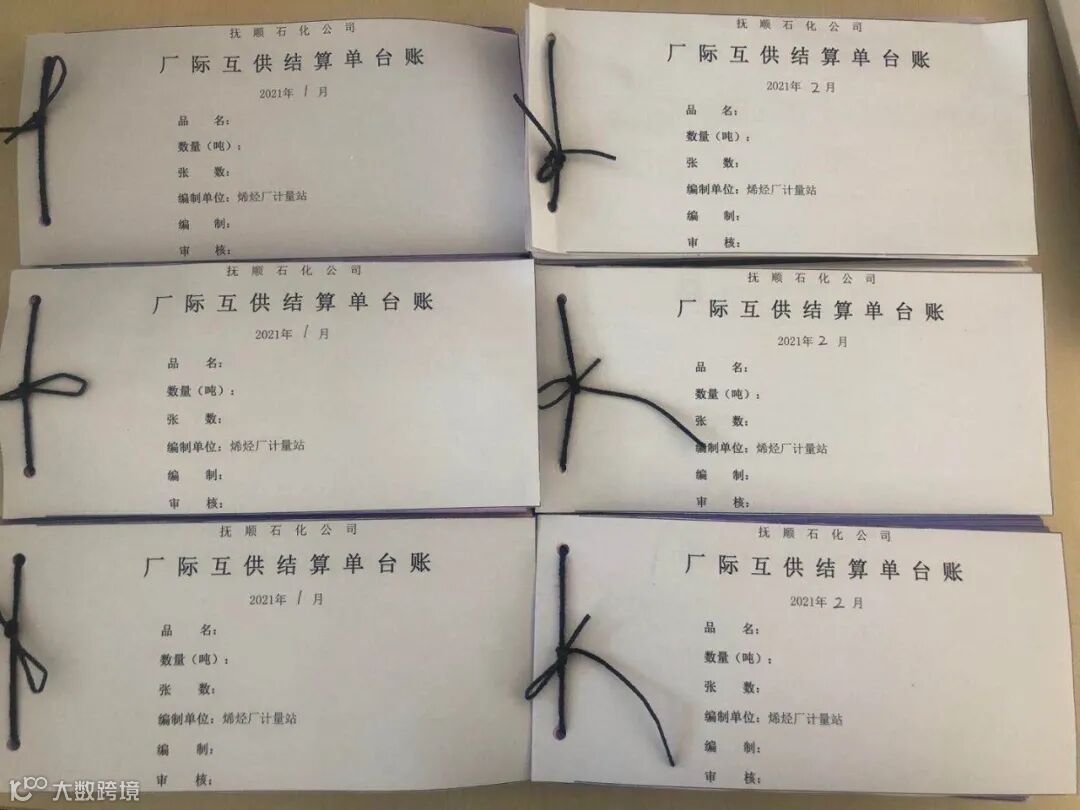 抚顺石化公司
厂际互供结算单台账
2021年 1 月
品 名：
数量（吨）：
张 数：
编制单位：烯烃厂计量站
编 制：
审 核：
抚顺石化公司
厂际互供结算单台账
2021年 2 月
品 名：
数量（吨）：
张 数：
编制单位：烯烃厂计量站
编 制：
审 核：
抚顺石化公司
厂际互供结算单台账
2021年 1 月
品 名：
数量（吨）：
张 数：
编制单位：烯烃厂计量站
编 制：
审 核：
抚顺石化公司
厂际互供结算单台账
2021年 2 月
品 名：
数量（吨）：
张 数：
编制单位：烯烃厂计量站
编 制：
审 核：
抚顺石化公司
厂际互供结算单台账
2021年 1 月
品 名：
数量（吨）：
张 数：
编制单位：烯烃厂计量站
编 制：
审 核：
抚顺石化公司
厂际互供结算单台账
2021年 2 月
品 名：
数量（吨）：
张 数：
编制单位：烯烃厂计量站
编 制：
审 核：
大数跨境